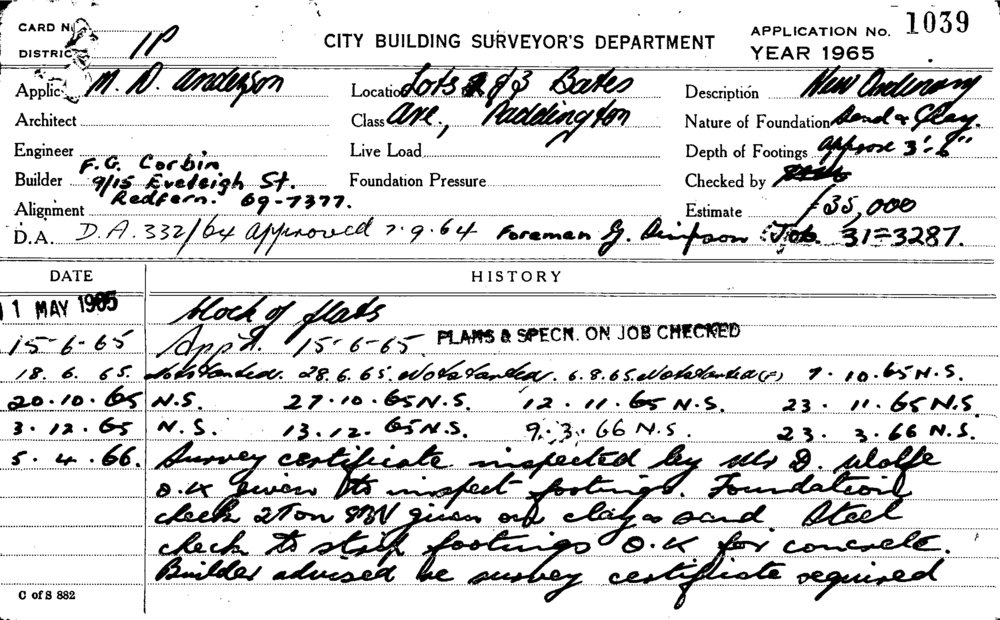 CARD N
DISTRIC 1P
CITY BUILDING SURVEYOR'S DEPARTMENT
APPLICATION No. 1039
YEAR 1965
Applic M. D. Anderson
Architect
Engineer
Builder F.G. Corbin
9/15 Eveleigh St.
Redfern. 69-7377.
Alignment
Location Lots 2 & 3 Bates
Class Ave., Paddington
Live Load
Foundation Pressure
Description New Ordinary
Nature of Foundation Sand & Clay.
Depth of Footings Approx 3'-6"
Checked by
Estimate £35,000
D.A. D.A. 332/64 approved 7.9.64 Foreman G. Simpson Job. 31=3287.
DATE HISTORY
11 MAY 1965 block of flats
15-6-65 App'd. 15-6-65. PLANS & SPECN. ON JOB CHECKED
18. 6. 65. Not started. 28.6.65. Not started. 6.8.65 Not started (F) 7.10.65 N.S.
20.10.65 N.S. 27.10.65 N.S. 12.11.65 N.S. 23.11.65 N.S.
3.12.65 N.S. 13.12.65 N.S. 9.3.66 N.S. 23.3.66 N.S.
5.4.66. Survey certificate inspected by Mr D. Wolfe
O.K given to inspect footings. Foundation
check 2 Ton given on clay & sand Steel
check to strip footings O.K for concrete.
Builder advised re survey certificate required
C of S 882